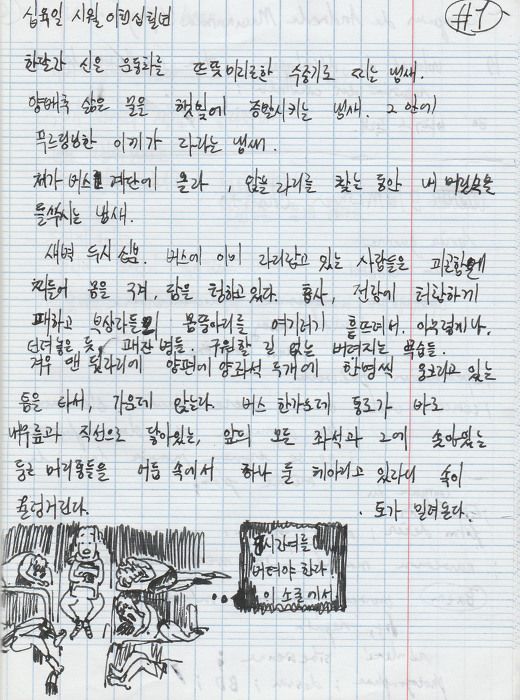 십육일 시월 이천십칠년
#1
한달간 신은 운동화를 뜨뜻미리한 수증기로 찌는 냄새.
양배추 삶은 물을 햇빛에 증발시키는 냄새. 그 안에
푸르링링한 이끼가 자라는 냄새.
버스 계단에 올라, 앉을 자리를 찾는 동안 내 머릿속을
들쑤시는 냄새.
새벽 두시 십분. 버스에 이미 자리잡고 있는 사람들은 피곤함에
찌들어 몸을 구겨, 잠을 청하고 있다. 흡사, 전장에 처참하게
패하고 부상자들의 몸뚱아리를 여기저기 흩뜨려서, 아무렇게나,
던져놓은 듯, 패잔병들. 구원할 길 없는 버려지는 목숨들.
겨우 맨 뒷자리에 양편에 양좌석 두개에 한명씩 웅크리고 있는
틈을 타서, 가운데 앉는다. 버스 한가운데 통로가 바로
내무릎과 직선으로 닿아있는, 앞의 모든 좌석과 그에 솟아있는
둥근 머리통들을 어둠 속에서 하나 둘 헤아리고 있자니 속이
울렁거린다. 토가 밀려온다.
시간여를
버텨야 한다.
이 소굴에서